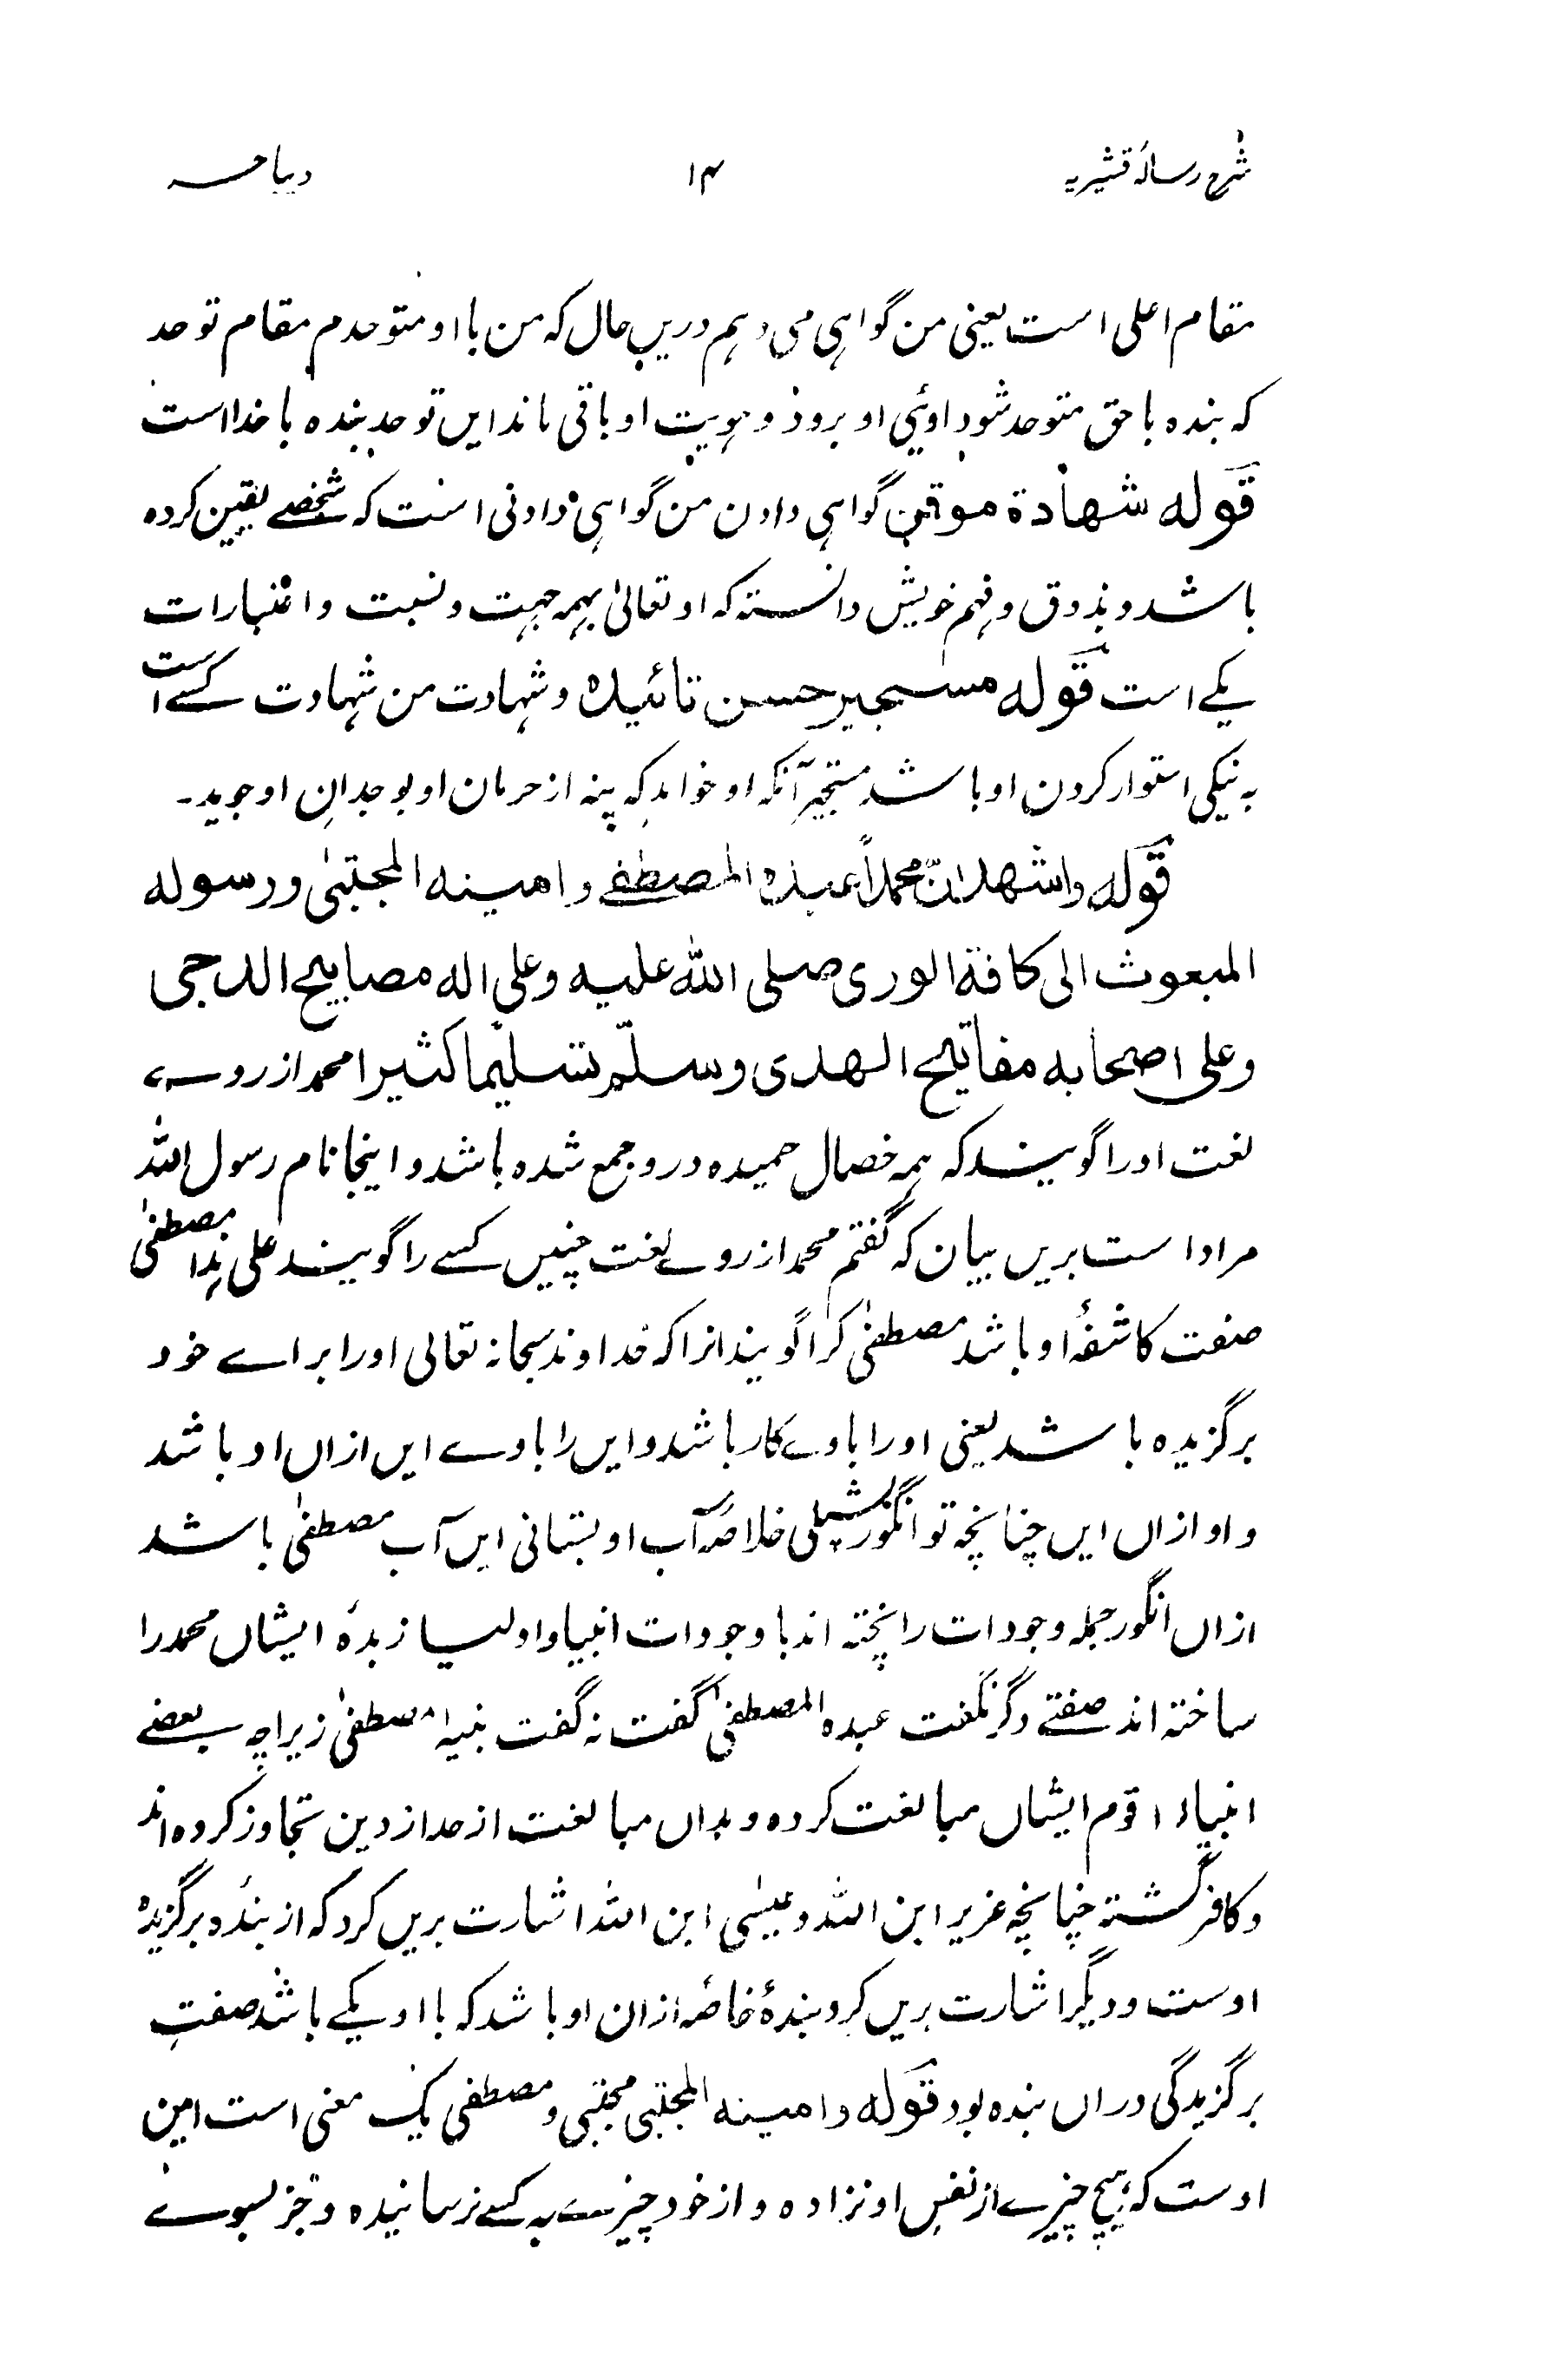 شرح رسالۂ قشیریہ ۱۴ دیباچہ
مقام اعلی است یعنی من گواہی می دہم دریں حال کہ من با او متوحدم مقام توحد
کہ بندہ با حق متوحد شود اوئی او برود و ہویت او باقی ماند ایں توحد بندہ با خدا است
قولہ شھادۃ موقن گواہی دادن من گواہی دادنی است کہ شخصے یقین کردہ
باشد و بذوق و فہم خویش دانستہ کہ او تعالیٰ بہمہ جہت و نسبت و اعتبارات
یکے است قولہ مستجیر حسن تائیدہ و شہادت من شہادت کسے است
بہ نیکی استوار کردن او باشد مستجیر آنکہ او خواہد کہ پنہ از حرمان او بوجدان او جوید۔
قولہ واشھد ان محمداً عبدہ المصطفے وامینہ المجتبیٰ ورسولہ
المبعوث الی کافۃ الوری صلی اللہ علیہ وعلی الہ مصابیح الدجی
وعلی اصحابہ مفاتیح الھدی وسلّم تسلیما کثیرا محمد از روے
لغت اورا گویند کہ ہمہ خصال حمیدہ درو جمع شدہ باشد و اینجا نام رسول اللہ
مراد است بریں بیان کہ گفتم محمد از روے لغت چنیں کسے را گویند علی ہذا مصطفیٰ
صفت کاشفۂ او باشد مصطفیٰ کرا گویند انرا کہ خداوند سبحانہ تعالی اورا براے خود
برگزیدہ باشد یعنی اورا باوے کار باشد و ایں را باوے ایں ازاں او باشد
و او ازاں ایں چنانچہ تو انگور بشیلی خلاصۂ آب او بستانی ایں آب مصطفیٰ باشد
ازاں انگور جملہ وجودات را پختہ اند با وجودات انبیا و اولیا زبدۂ ایشاں محمد را
ساختہ اند صفتے دگر نگفت عبدہ المصطفیٰ گفت نہ گفت نبیہ مصطفیٰ زیراچہ بعضے
انبیاء اقوم ایشاں مبالغت کردہ و بداں مبالغت از حد از دین تجاوز کردہ اند
و کافر گشتہ چنانچہ عزیر ابن اللہ و عیسٰی ابن اللہ اشارت بریں کرد کہ از بندۂ برگزیدہ
اوست و دیگر اشارت بریں کرد بندۂ خاصۂ ازان او باشد کہ با او یکے باشد صفتِ
برگزیدگی دراں بندہ بود قولہ وامینہ المجتبی مجتبی و مصطفی یک معنی است امین
اوست کہ ہیچ چیزے از نفسِ او نزادہ و از خود چیزے بہ کسے نرسانیدہ و جز بسوے